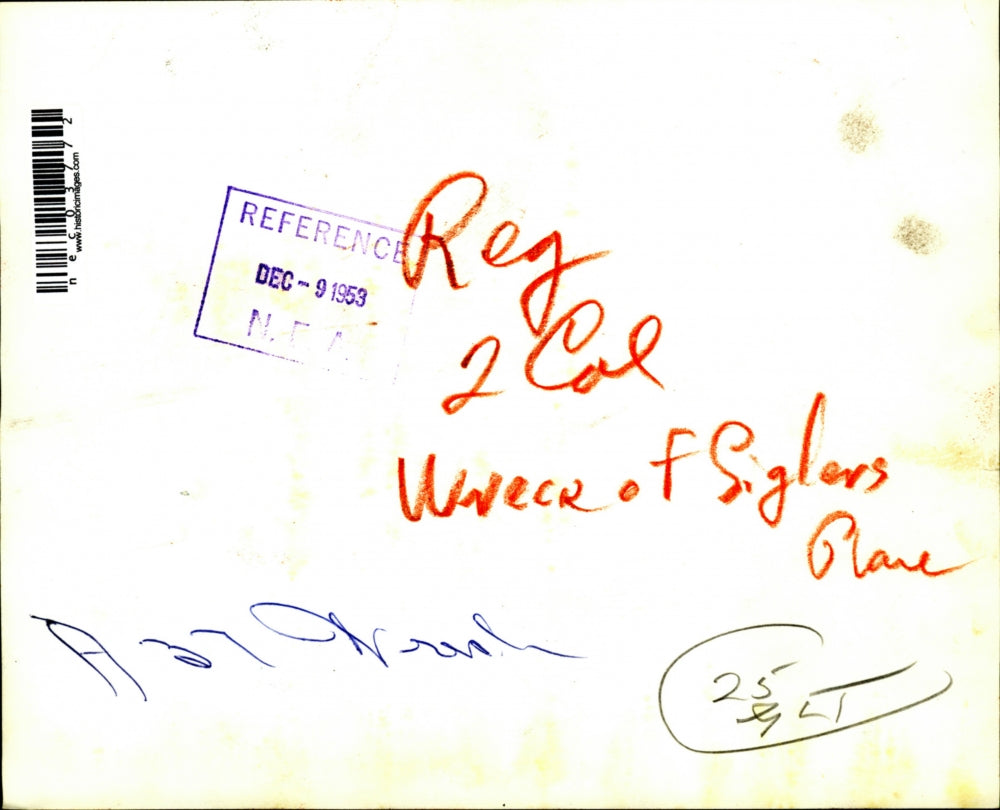 necO3772
www.historicimages.com
REFERENCE
DEC - 9 1953
N. E. A.
Reg
2 Col
Wreck of Siglers
Plane
25